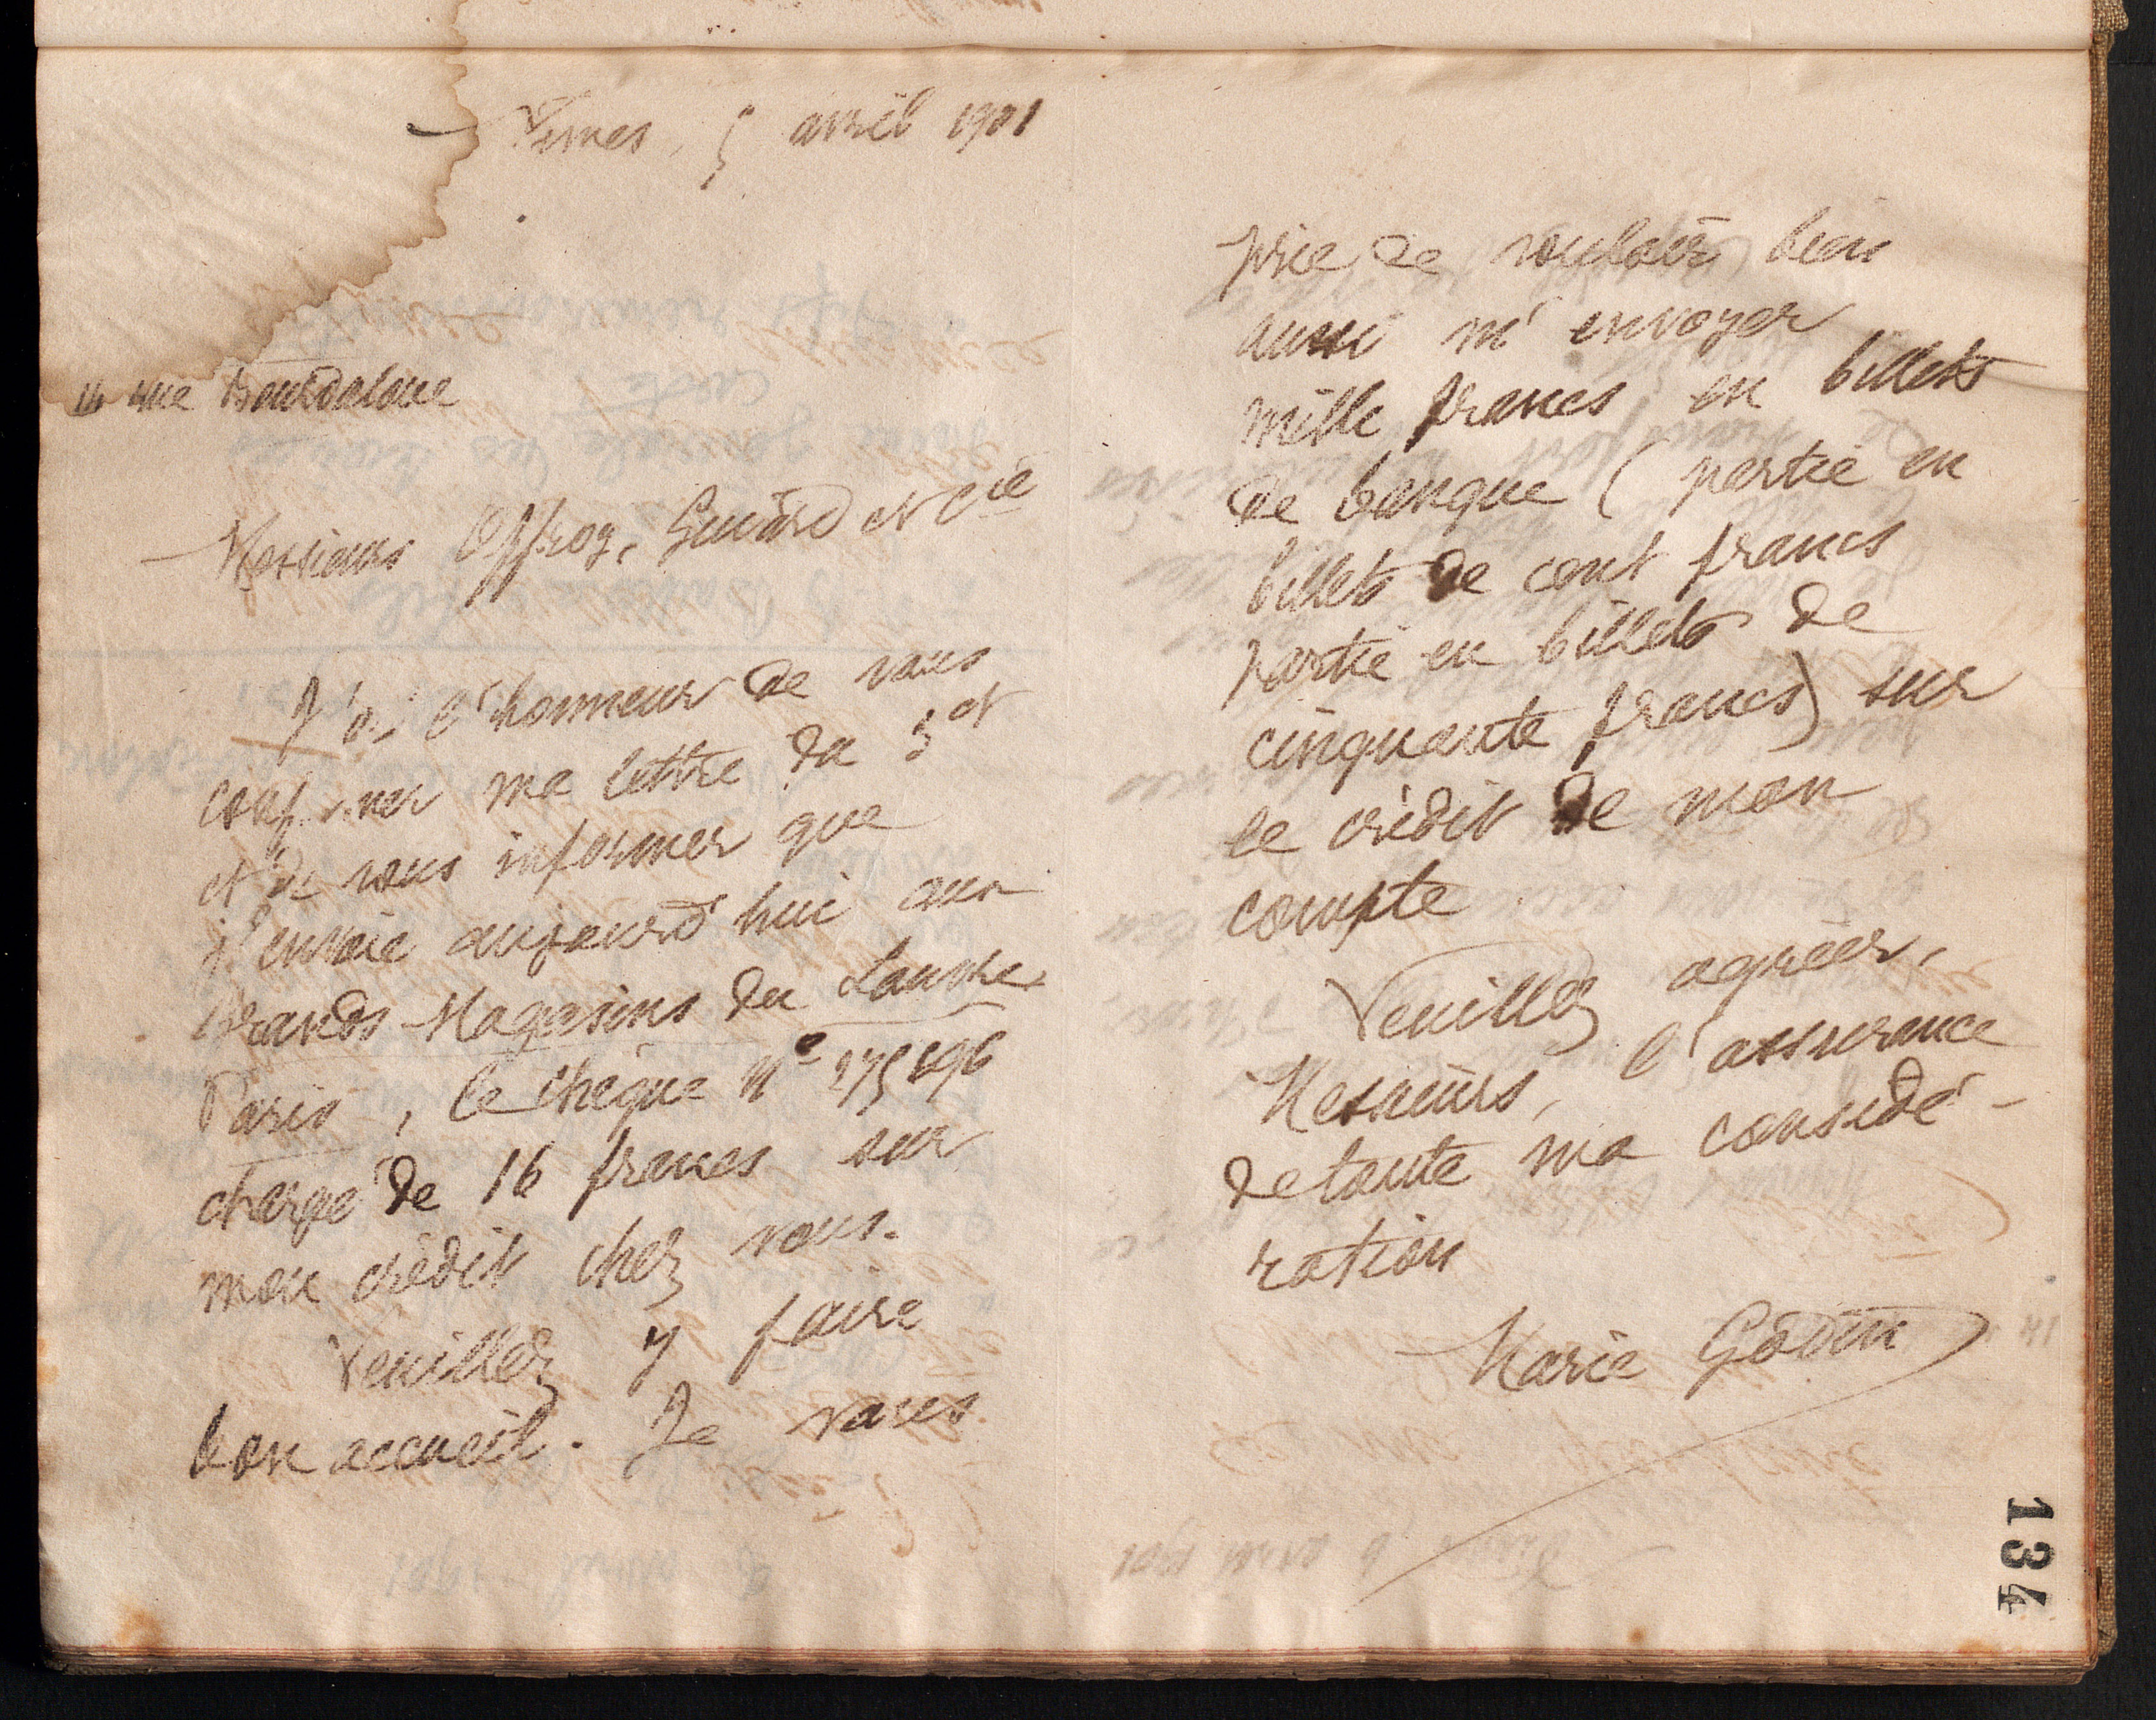 Nimes, 5 avril 1901
14 rue Bourdaloue
Messieurs Offroy, Guiard et Cie
J'ai l'honneur de vous
confirmer ma lettre du 3 ct
et de vous informer que
j'envoie aujourd'hui aux
Grands Magasins du Louvre
Paris, le chèque No
chargé de 16 francs sur
mon crédit chez vous.
Veuillez y faire
bon accueil. Je vous
prie de vouloir bien
aussi m'envoyer
mille francs en billets
de banque (partie en
billets de cent francs
partie en billets de
cinquante francs) sur
le crédit de mon
compte.
Veuillez agréer,
Messieurs, l'assurance
de toute ma considé-
ration
Marie Godin
134